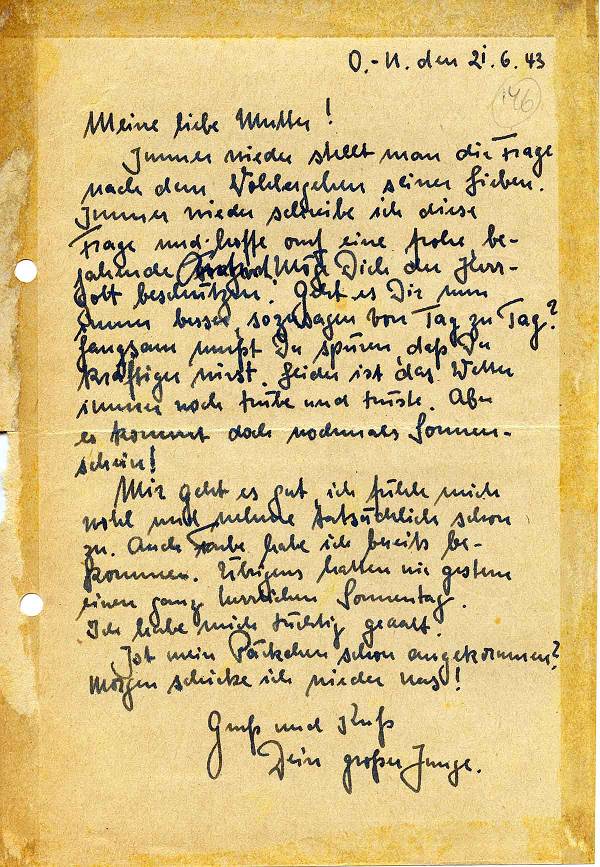 O.-U. den 21.6.43
146
Meine liebe Mutter!
Immer wieder stellt man die Frage
nach dem Wohlergehen seiner Lieben.
Immer wieder schreibe ich diese
Frage und hoffe auf eine frohe, be-
jahende Möge Dich der Herr-
Gott beschützen! Geht es Dir nun
immer besser, sozusagen von Tag zu Tag?
Langsam mußt Du spüren, daß Du
kräftiger wirst. Leider ist das Wetter
immer noch trübe und triste. Aber
es kommt doch nochmals Sonnen-
schein!
Mir geht es gut, ich fühle mich
wohl und nehme tatsächlich schon
zu. Auch Farbe habe ich bereits be-
kommen. Übrigens hatten wir gestern
einen ganz herrlichen Sonnentag.
Ich habe mich tüchtig geaalt.
Ist mein Päckchen schon angekommen?
Morgen schicke ich wieder was!
Gruß und Kuß
Dein großer Junge.